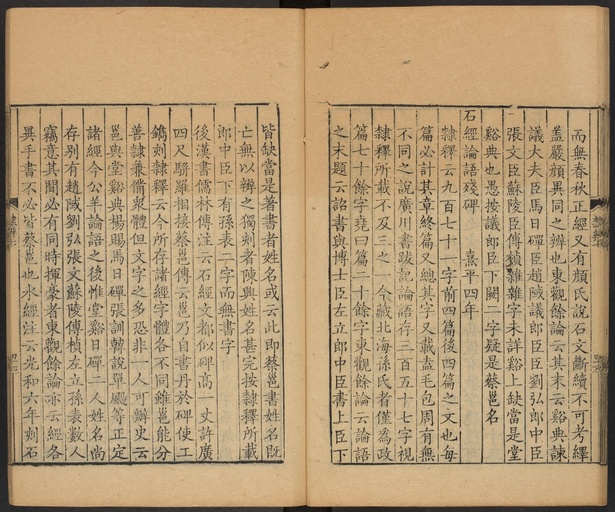 而無春秋正經又有顔氏說石文斷續不可考繹
盖嚴顔異同之辨也東觀餘論云其末云谿典諫
議大夫臣馬日磾臣趙䧕議郎臣臣劉弘郎中臣
張文臣蘇陵臣傅楨雜雜字未詳谿上缺當是堂
谿典也愚按議郎臣下闕二字疑是蔡邕名
石經論語殘碑 熹平四年
隸釋云九百七十一字前四篇後四篇之文也每
篇必計其章終篇又總其字又載盖毛包周有無
不同之說廣川書跋記論語存三百五十七字視
隸釋所載不及三之一今藏北海孫氏者僅爲政
篇七十餘字堯曰篇二十餘字東觀餘論云論語
之末題云詔書與博士臣左立郎中臣書上臣下
皆缺當是著書者姓名或云此即蔡邕書姓名既
亡無以辨之獨刻者陳興姓名甚完按隸釋所載
郎中臣下有孫表二字而無書字
後漢書儒林傳注云石經文都似碑高一丈許廣
四尺駢羅相接蔡邕傳云邕乃自書丹於碑使工
鐫刻隸釋云今所存諸經字體各不同雖邕能分
善隸兼備衆體但文字之多恐非一人可辦史云
邕與堂谿典楊賜馬日磾張訓韓說單颺等正定
諸經今公羊論語之後惟堂谿日磾二人姓名尚
存别有趙䧕劉弘張文蘇陵傅楨左立孫表數人
竊意其間必有同時揮豪者東觀餘論亦云經各
異手書不必皆蔡邕也水經注云光和六年刻石